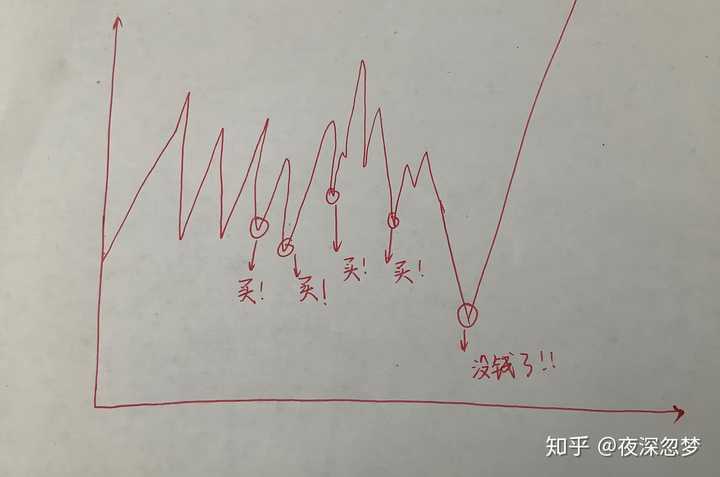 买!
买!
买!
买!
没钱了!!
知乎 @夜深忽梦